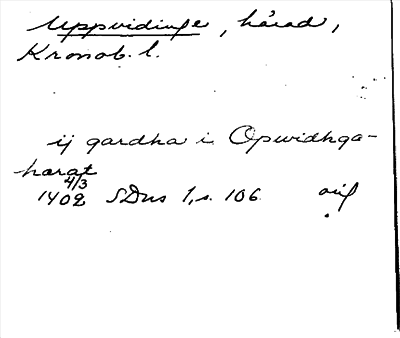 Uppvidinge, härad,
Kronob. l.
ij gardha i Opwidhga-
harat
4/3
1402 SDns 1, s. 106. orig